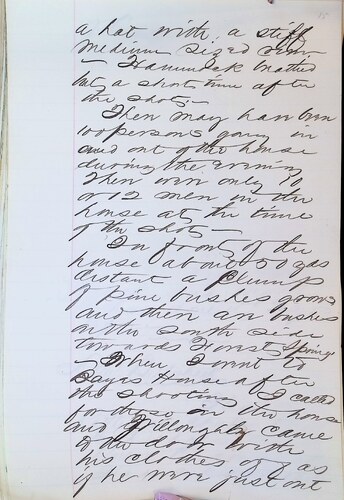 a hat with a stiff
medium sized rim
— Hammock breathed
but a short time after
the shot. —
There may have been
100 persons going in
and out of the house
during the evening
There were only 10
or 12 men in the
house at the time
of the shot —
In front of the
house about 50 yds
distant a clump
of pine bushes grows
and there are bushes
on the south side
towards Forest Springs
— When I went to
Sayrs House after
the shooting I called
for those in the house
and Willoughby came
to the door with
his clothes off as
if he were just out